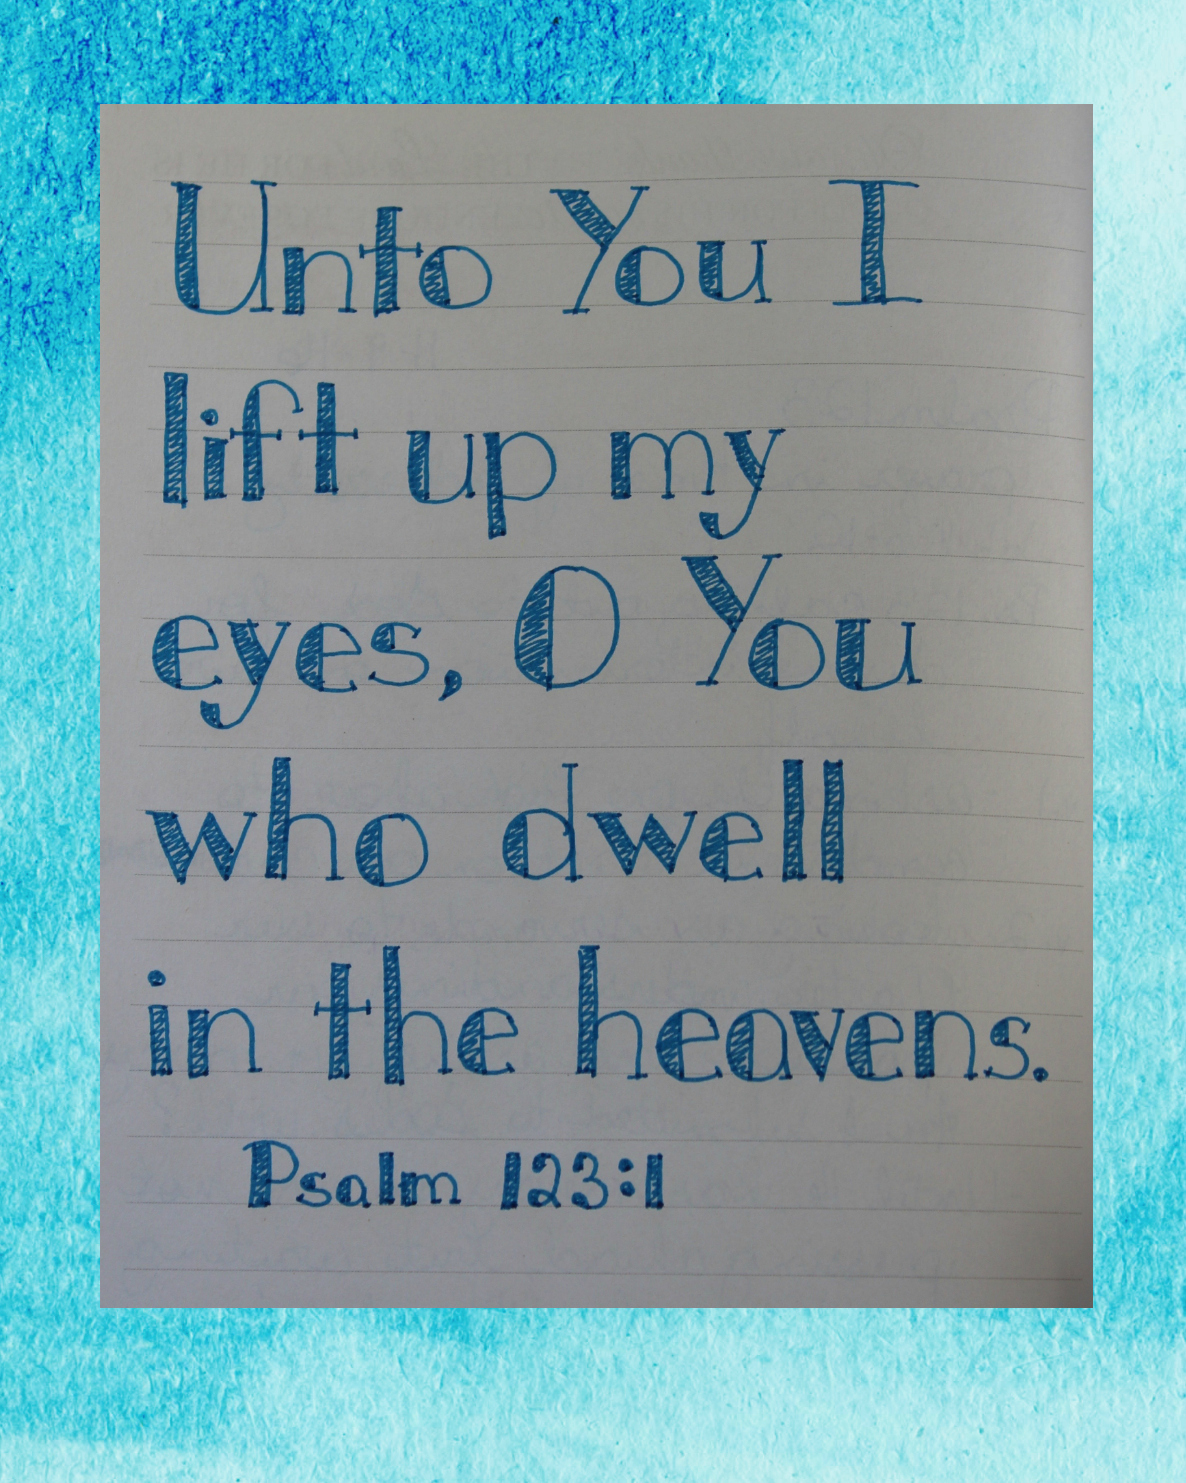 Unto You I
lift up my
eyes, O You
who dwell
in the heavens.
Psalm 123:1